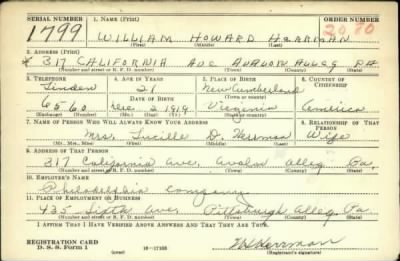 SERIAL NUMBER 1. NAME (Print) ORDER NUMBER
1799 WILLIAM HOWARD HERRMAN 2080
(First) (Middle) (Last)
2. ADDRESS (Print)
317 CALIFORNIA AVE AVALON ALLEG PA
(Number and street or R. F. D. number) (Town) (County) (State)
3. TELEPHONE 4. AGE IN YEARS 5. PLACE OF BIRTH 6. COUNTRY OF CITIZENSHIP
Linden 21 New Cumberland
6560 DATE OF BIRTH
Dec. 2 1919 Virginia America
7. NAME OF PERSON WHO WILL ALWAYS KNOW YOUR ADDRESS 8. RELATIONSHIP OF THAT PERSON
Mrs. Lucille D. Herrman Wife
(Mr., Mrs., Miss) (First) (Middle) (Last)
9. ADDRESS OF THAT PERSON
317 California Ave. Avalon Alleg Pa.
(Number and street or R. F. D. number) (Town) (County) (State)
10. EMPLOYER'S NAME
Philadelphia Company
11. PLACE OF EMPLOYMENT OR BUSINESS
435 Sixth Ave. Pittsburgh Alleg Pa
(Number and street or R. F. D. number) (Town) (County) (State)
I AFFIRM THAT I HAVE VERIFIED ABOVE ANSWERS AND THAT THEY ARE TRUE.
REGISTRATION CARD
D. S. S. Form 1 (over) 16-17105 (Registrant's signature)